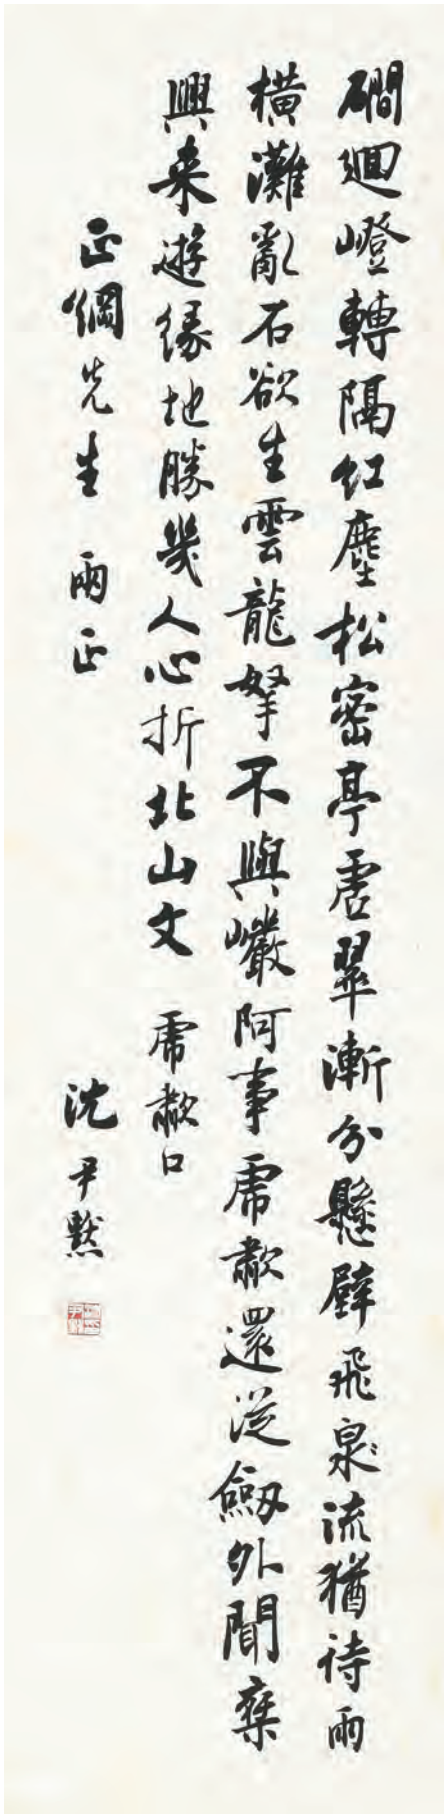 磵迴嶝轉隔紅塵松密亭虛翠漸分懸壁飛泉流猶待雨
橫灘亂石欲生雲龍拏不與巖阿事虎歗還從劔外聞椉
興来遊緣地勝幾人心折北山文 虎歗口
正綱先生 兩正 沈尹默